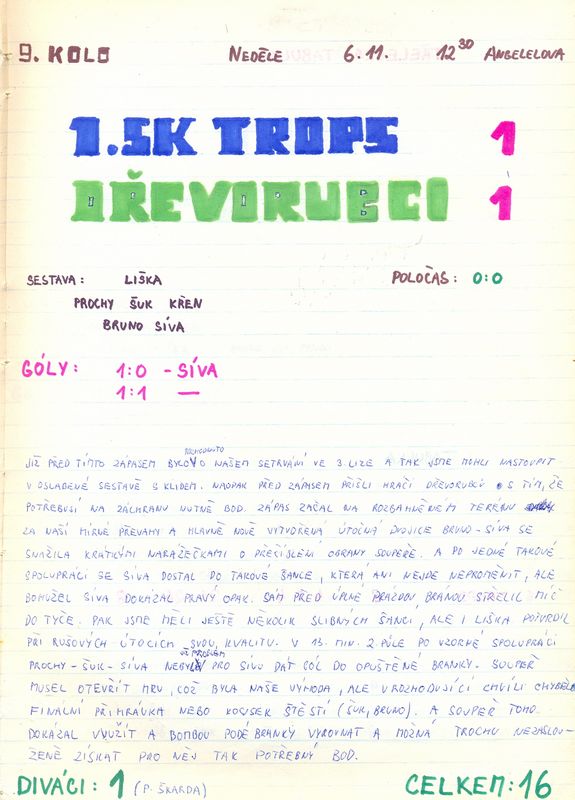 9. KOLO NEDĚLE 6.11. 12³⁰ ANGELELOVA
1.SK TROPS 1
DŘEVORUBCI 1
SESTAVA: LIŠKA POLOČAS: 0:0
PROCHY ŠUK KŘEN
BRUNO SÍVA
GÓLY: 1:0 - SÍVA
1:1 —
ROZHODNUTO
JIŽ PŘED TÍMTO ZÁPASEM BYLO O NAŠEM SETRVÁNÍ VE 3. LIZE A TAK JSME MOHLI NASTOUPIT
V OSLABENÉ SESTAVĚ S KLIDEM. NAOPAK PŘED ZÁPASEM PŘIŠLI HRÁČI DŘEVORUBCŮ S TÍM, ŽE
POTŘEBUJÍ NA ZÁCHRANU NUTNĚ BOD. ZÁPAS ZAČAL NA ROZBAHNĚNÉM TERÉNU
ZA NAŠÍ MÍRNÉ PŘEVAHY A HLAVNĚ NOVĚ VYTVOŘENÁ ÚTOČNÁ DVOJICE BRUNO - SÍVA SE
SNAŽILA KRÁTKÝMI NARÁŽEČKAMI O PŘEČÍSLENÍ OBRANY SOUPEŘE. A PO JEDNÉ TAKOVÉ
SPOLUPRÁCI SE SÍVA DOSTAL DO TAKOVÉ ŠANCE, KTERÁ ANI NEJDE NEPROMĚNIT, ALE
BOHUŽEL SÍVA DOKÁZAL PRAVÝ OPAK. SÁM PŘED ÚPLNĚ PRÁZDNOU BRANOU STŘELIL MÍČ
DO TYČE. PAK JSME MĚLI JEŠTĚ NĚKOLIK SLIBNÝCH ŠANCÍ, ALE I LIŠKA POTVRDIL
PŘI RUŠOVÝCH ÚTOCÍCH SVOU KVALITU. V 13. MIN. 2. PŮLE PO VZORNÉ SPOLUPRÁCI
UŽ PROBLÉM
PROCHY - ŠUK - SÍVA NEBYL PRO SÍVU DAT GÓL DO OPUŠTĚNÉ BRANKY. SOUPEŘ
MUSEL OTEVŘÍT HRU, COŽ BYLA NAŠE VÝHODA, ALE V ROZHODUJÍCÍ CHVÍLI CHYBĚLA
FINÁLNÍ PŘIHRÁVKA NEBO KOUSEK ŠTĚSTÍ (ŠUK, BRUNO). A SOUPEŘ TOHO
DOKÁZAL VYUŽÍT A BOMBOU PODÉ BRANKY VYROVNAT A MOŽNÁ TROCHU NEZASLOU-
ŽENĚ ZÍSKAT PRO NĚJ TAK POTŘEBNÝ BOD.
DIVÁCI: 1 (P. ŠKARDA) CELKEM: 16